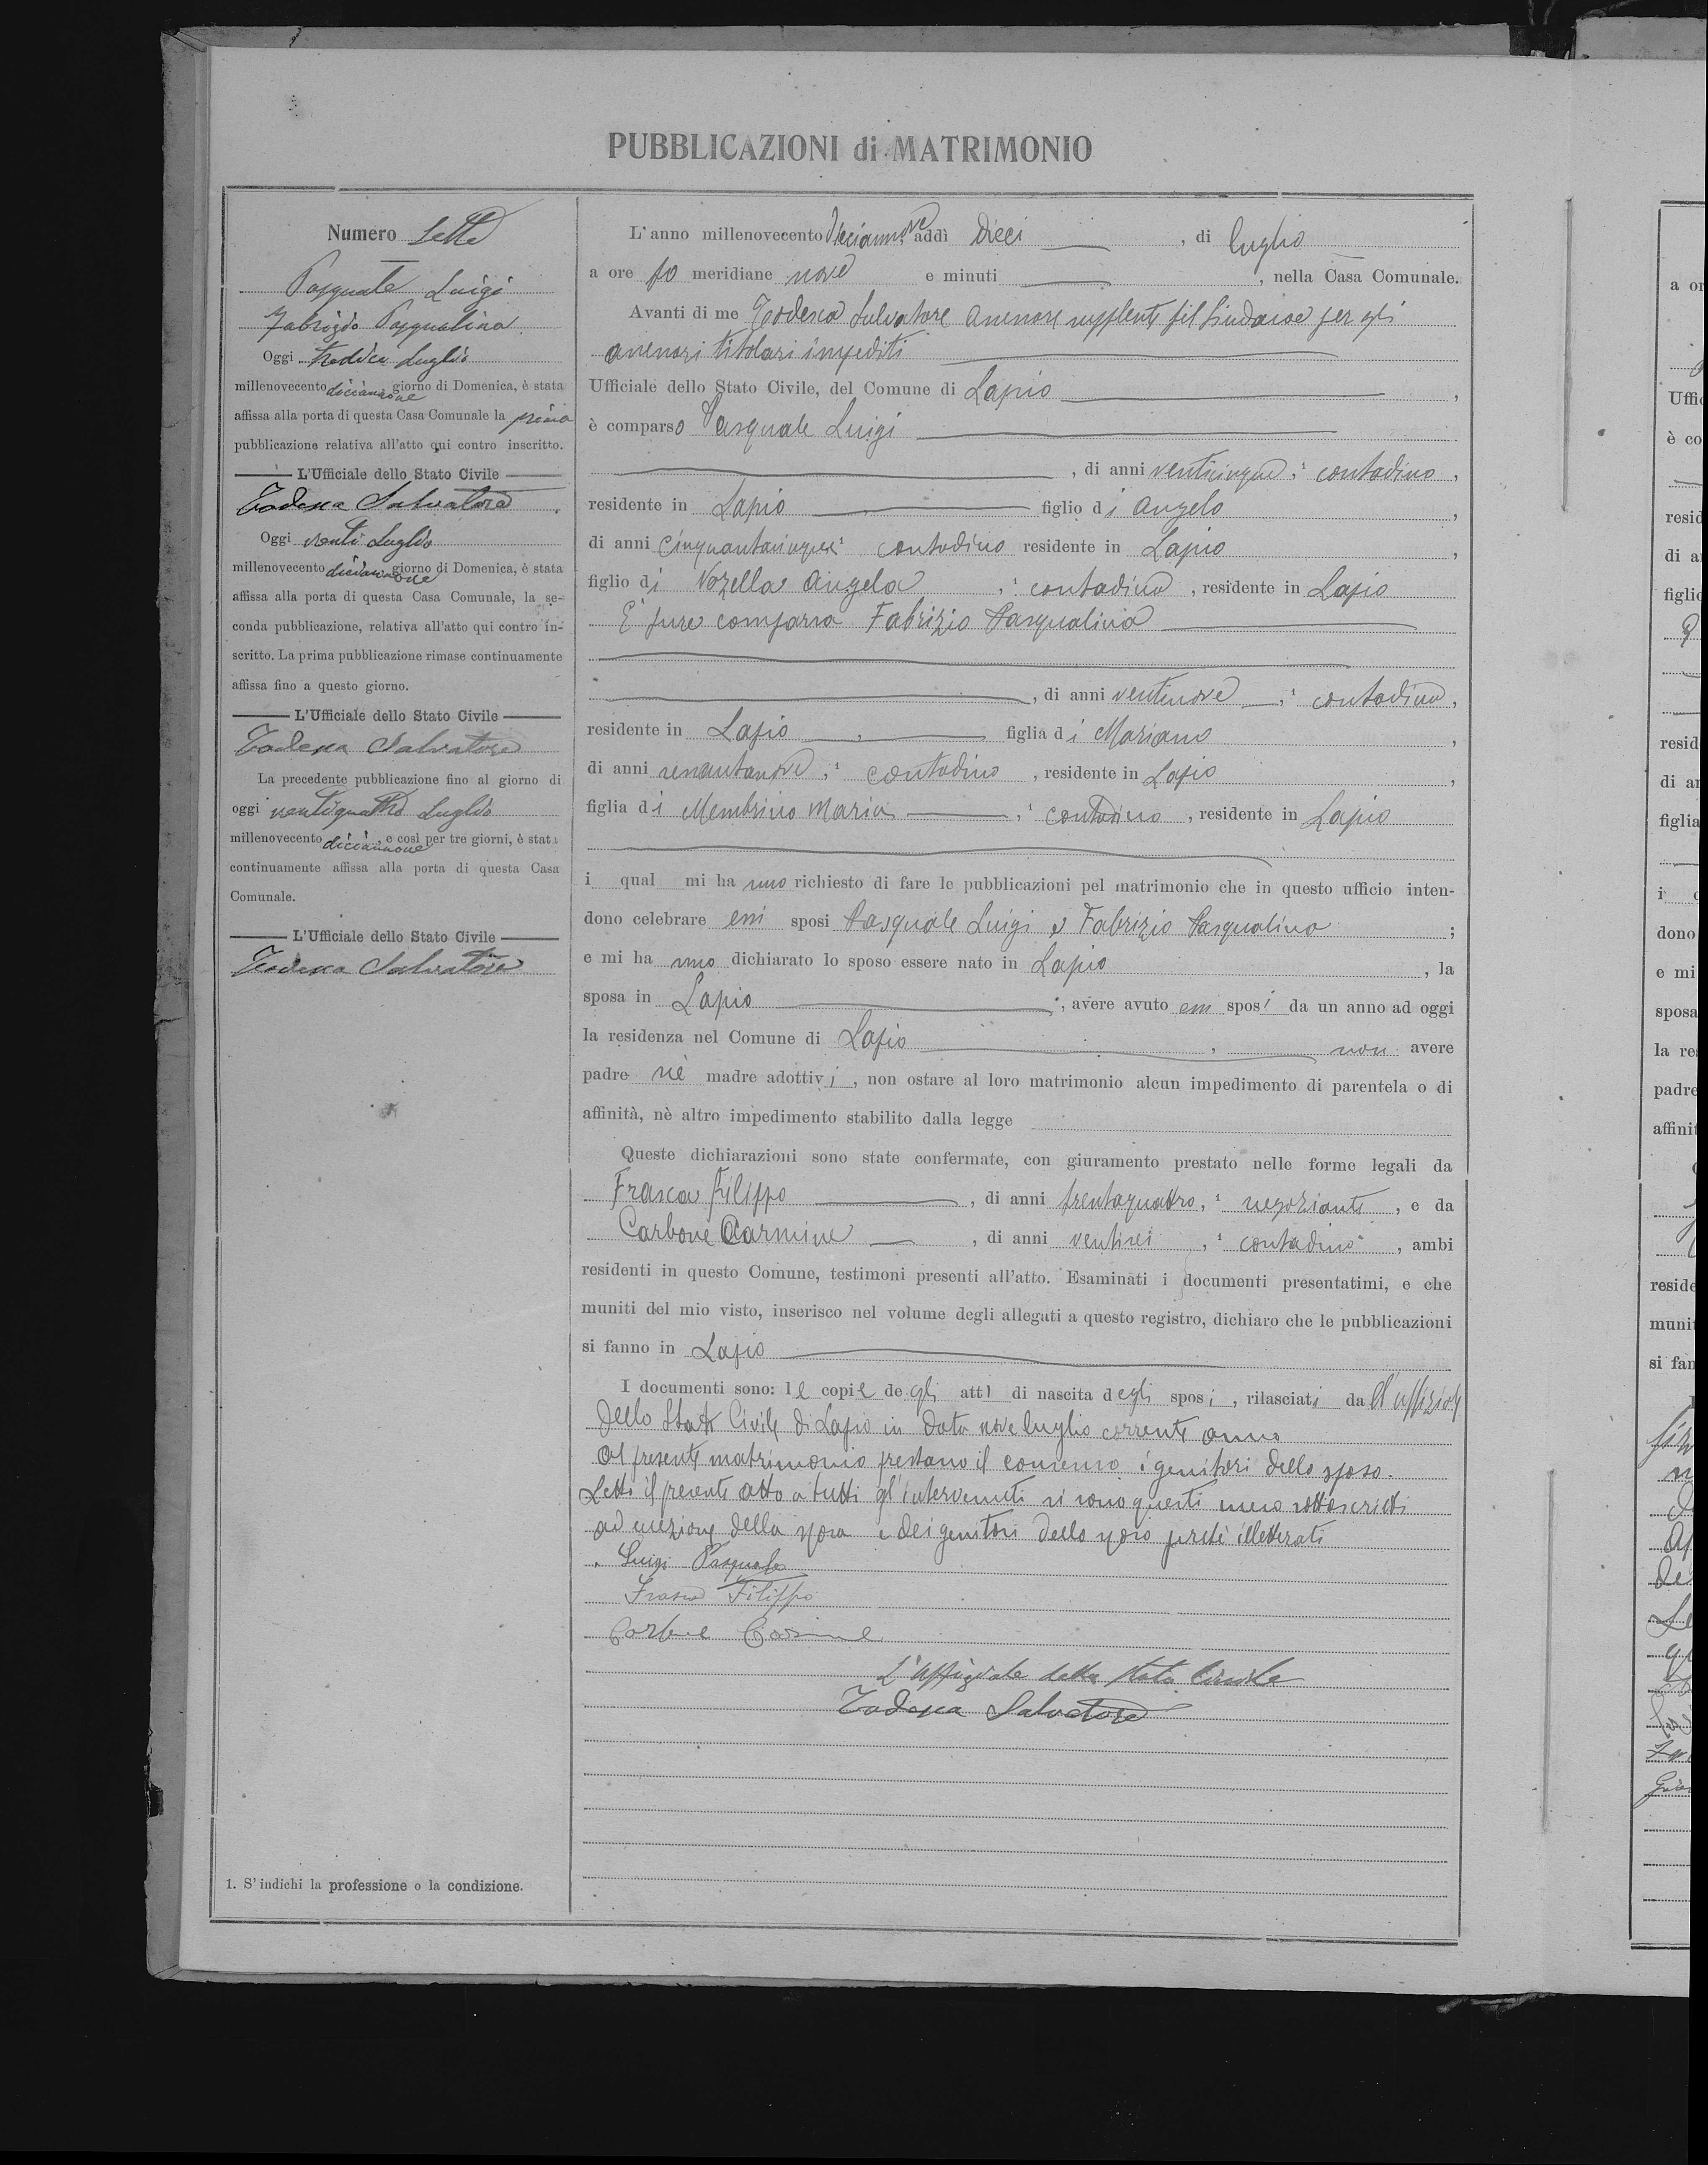 PUBBLICAZIONI di MATRIMONIO
Numero Sette
Pasquale Luigi
Fabrizio Pasqualina
Oggi tredici Luglio
millenovecento diciannove giorno di Domenica, è stata
affissa alla porta di questa Casa Comunale la prima
pubblicazione relativa all'atto qui contro inscritto.
L'Ufficiale dello Stato Civile
Todesca Salvatore
Oggi venti Luglio
millenovecento diciannove giorno di Domenica, è stata
affissa alla porta di questa Casa Comunale, la se-
conda pubblicazione, relativa all'atto qui contro in-
scritto. La prima pubblicazione rimase continuamente
affissa fino a questo giorno.
L'Ufficiale dello Stato Civile
Todesca Salvatore
La precedente pubblicazione fino al giorno di
oggi ventiquattro Luglio
millenovecento diciannove e così per tre giorni, è stata
continuamente affissa alla porta di questa Casa
Comunale.
L'Ufficiale dello Stato Civile
Todesca Salvatore
1. S'indichi la professione o la condizione.
L'anno millenovecento diciannove addì dieci, di luglio
a ore po meridiane nove e minuti, nella Casa Comunale.
Avanti di me Todesca Salvatore assessore supplente pel Sindaco e per gli
assessori titolari impediti
Ufficiale dello Stato Civile, del Comune di Lapio,
è comparso Pasquale Luigi
, di anni venticinque, ¹ contadino,
residente in Lapio figlio di Angelo,
di anni cinquantacinque ¹ contadino residente in Lapio,
figlio di Nozella Angela, ¹ contadina, residente in Lapio
È pure comparsa Fabrizio Pasqualina
, di anni ventinove, ¹ contadina,
residente in Lapio figlia di Mariano,
di anni sessantanove, ¹ contadino, residente in Lapio,
figlia di Membrino Maria, ¹ contadina, residente in Lapio
i qual mi ha nno richiesto di fare le pubblicazioni pel matrimonio che in questo ufficio inten-
dono celebrare essi sposi Pasquale Luigi e Fabrizio Pasqualina;
e mi ha nno dichiarato lo sposo essere nato in Lapio, la
sposa in Lapio, avere avuto essi sposi da un anno ad oggi
la residenza nel Comune di Lapio, non avere
padre nè madre adottivi, non ostare al loro matrimonio alcun impedimento di parentela o di
affinità, nè altro impedimento stabilito dalla legge
Queste dichiarazioni sono state confermate, con giuramento prestato nelle forme legali da
Frasca Filippo, di anni trentaquattro, ¹ negoziante, e da
Carbone Carmine, di anni ventisei, ¹ contadino, ambi
residenti in questo Comune, testimoni presenti all'atto. Esaminati i documenti presentatimi, e che
muniti del mio visto, inserisco nel volume degli allegati a questo registro, dichiaro che le pubblicazioni
si fanno in Lapio
I documenti sono: le copie degli atti di nascita degli sposi, rilasciati dall'uffiziale
dello Stato Civile di Lapio in data nove luglio corrente anno
Al presente matrimonio prestano il consenso i genitori dello sposo.
Letto il presente atto a tutti gl'intervenuti si sono questi meco sottoscritti
ad eccezione della sposa e dei genitori dello sposo perchè illetterati
Luigi Pasquale
Frasca Filippo
Carbone Carmine
L'Uffiziale dello Stato Civile
Todesca Salvatore